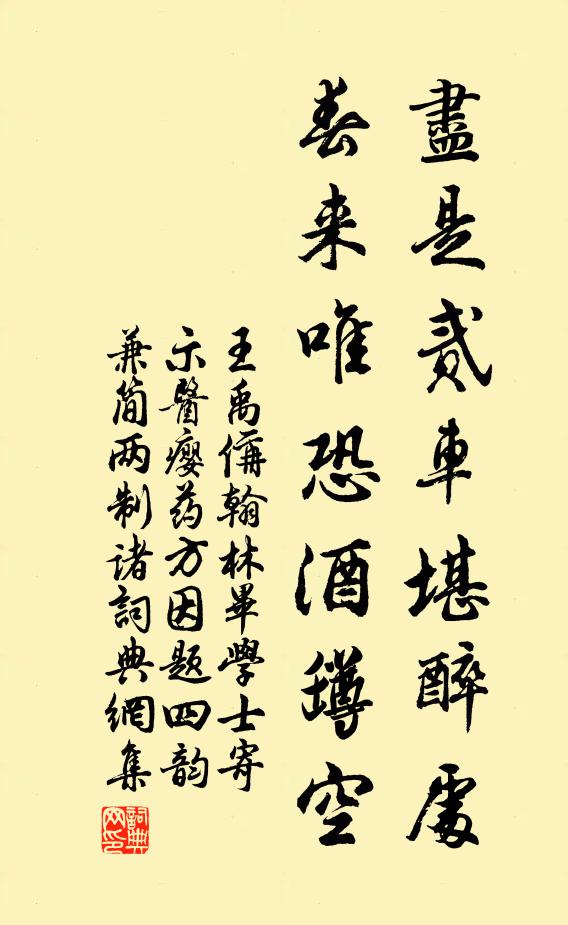 盡是貳車堪醉處
春来唯恐酒罇空
王禹偁翰林畢學士寄
示醫瘿药方因题四韵
兼简两制诸詞典網集
詞典网印